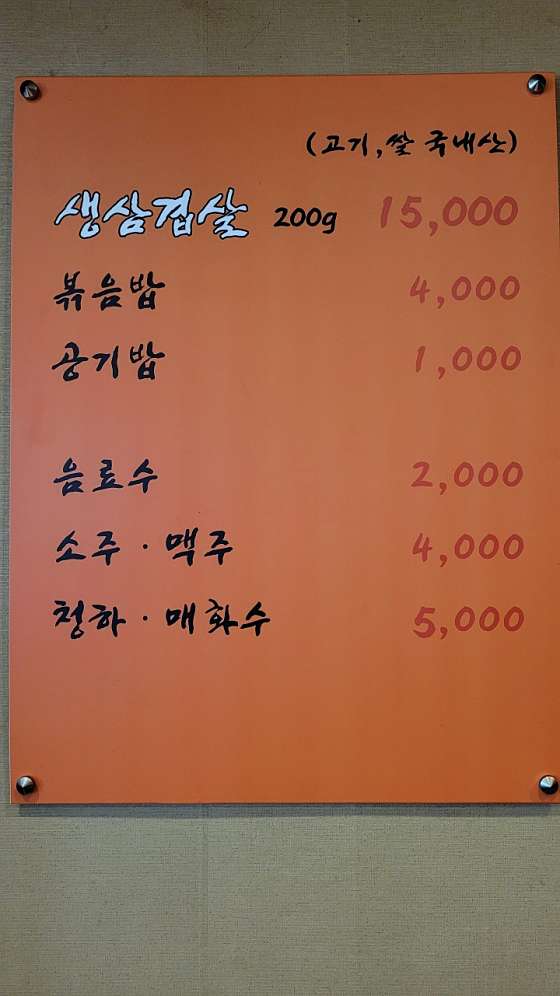 (고기,쌀 국내산)
생삼겹살 200g 15,000
볶음밥 4,000
공기밥 1,000
음료수 2,000
소주 · 맥주 4,000
청하 · 매화수 5,000